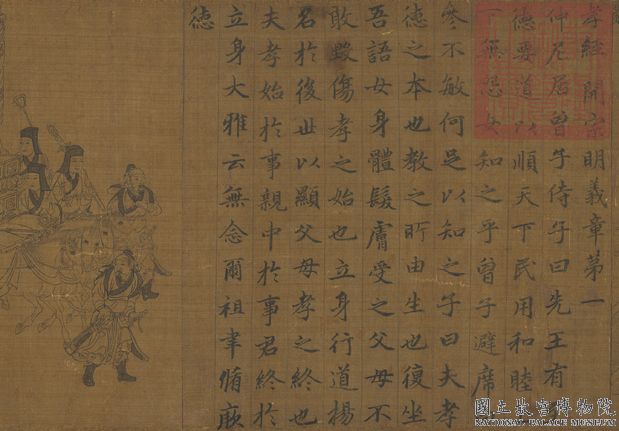 孝經開宗明義章第一
仲尼居曾子侍子曰先王有
德要道以順天下民用和睦
下無怨女知之乎曾子避席
參不敏何足以知之子曰夫孝
德之本也教之所由生也復坐
吾語女身體髮膚受之父母不
敢毀傷孝之始也立身行道揚
名於後世以顯父母孝之終也
夫孝始於事親中於事君終於
立身大雅云無念爾祖聿脩厥
德
國立故宮博物院
NATIONAL PALACE MUSEUM